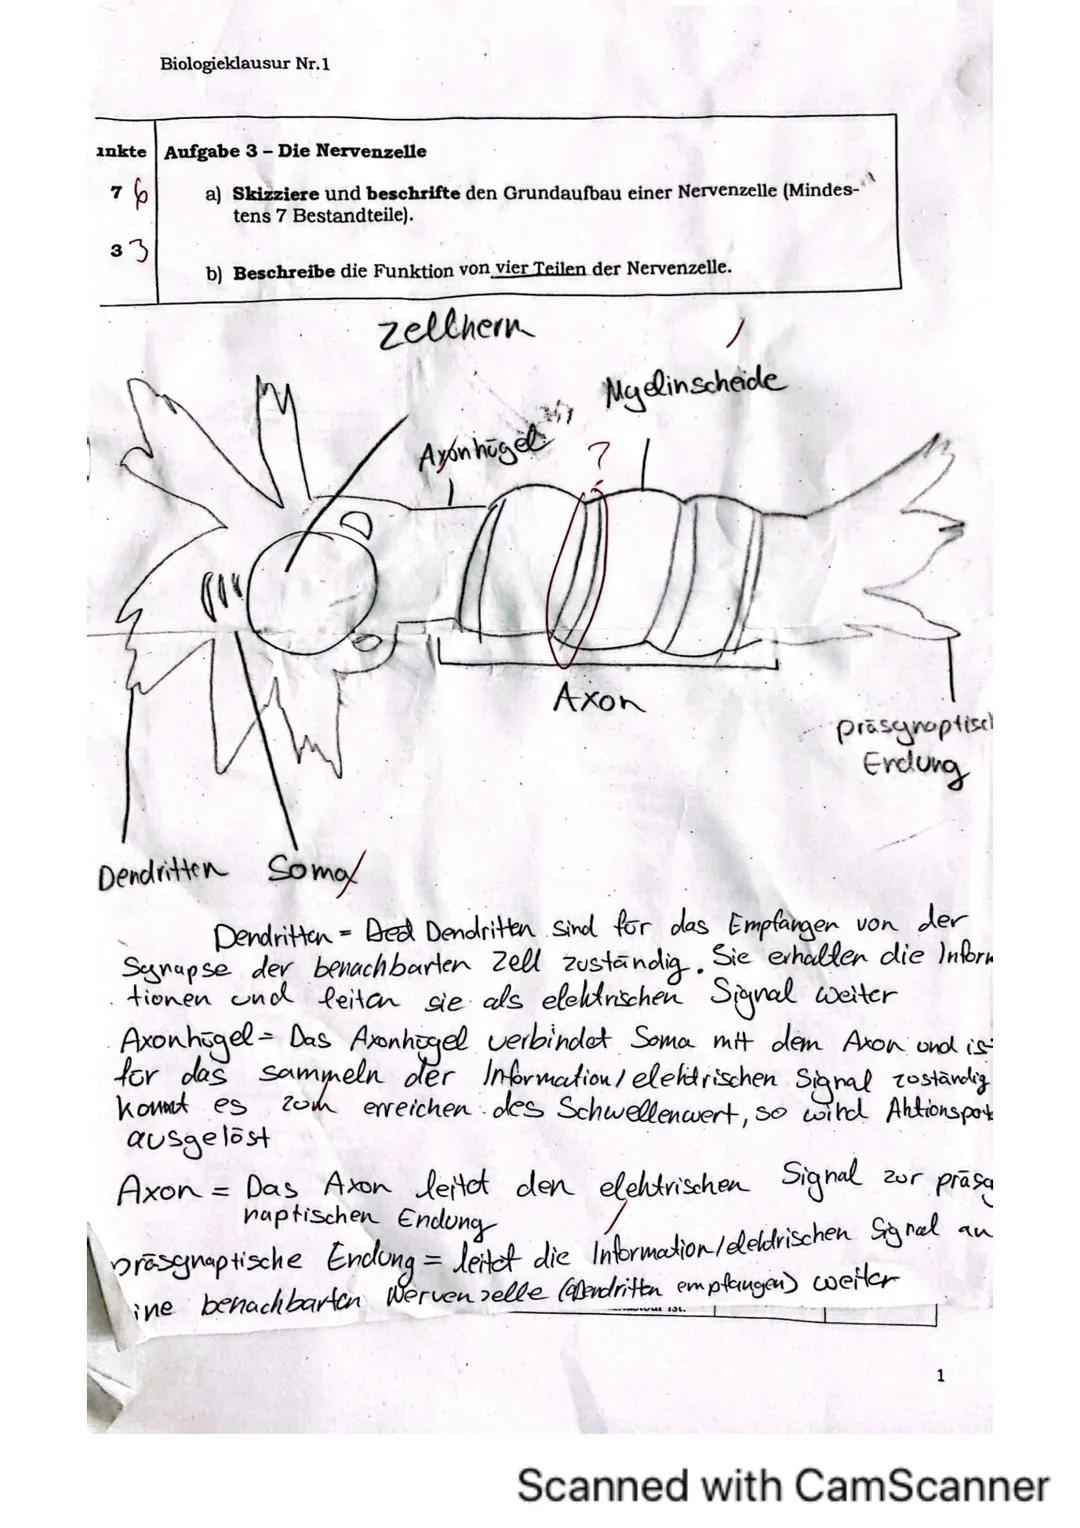 Biologieklausur Nr.1
unkte Aufgabe 3 – Die Nervenzelle
7 6 a) Skizziere und beschrifte den Grundaufbau einer Nervenzelle (Mindes-
tens 7 Bestandteile).
3 3
b) Beschreibe die Funktion von vier Teilen der Nervenzelle.
Zellkern
Myelinscheide
Axonhügel ?
Axon
präsynaptisch
Endung
Dendritten Soma
Dendritten = Ded Dendritten sind für das Empfangen von der
Synapse der benachbarten Zell zuständig. Sie erhalten die Inform
tionen und leiten sie als elektrischen Signal weiter
Axonhügel = Das Axonhügel verbindet Soma mit dem Axon und ist
für das sammeln der Information/elektrischen Signal zuständig
kommt es zum erreichen des Schwellenwert, so wird Aktionspot
ausgelöst
Axon = Das Axon leitet den elektrischen Signal zur präsy
naptischen Endung
präsynaptische Endung = leitet die Information/elektrischen Signal an
ine benachbarten Nervenzelle (Dendritten empfangen) weiter
ist.
1
Scanned with CamScanner